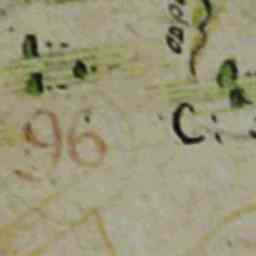 96
C: